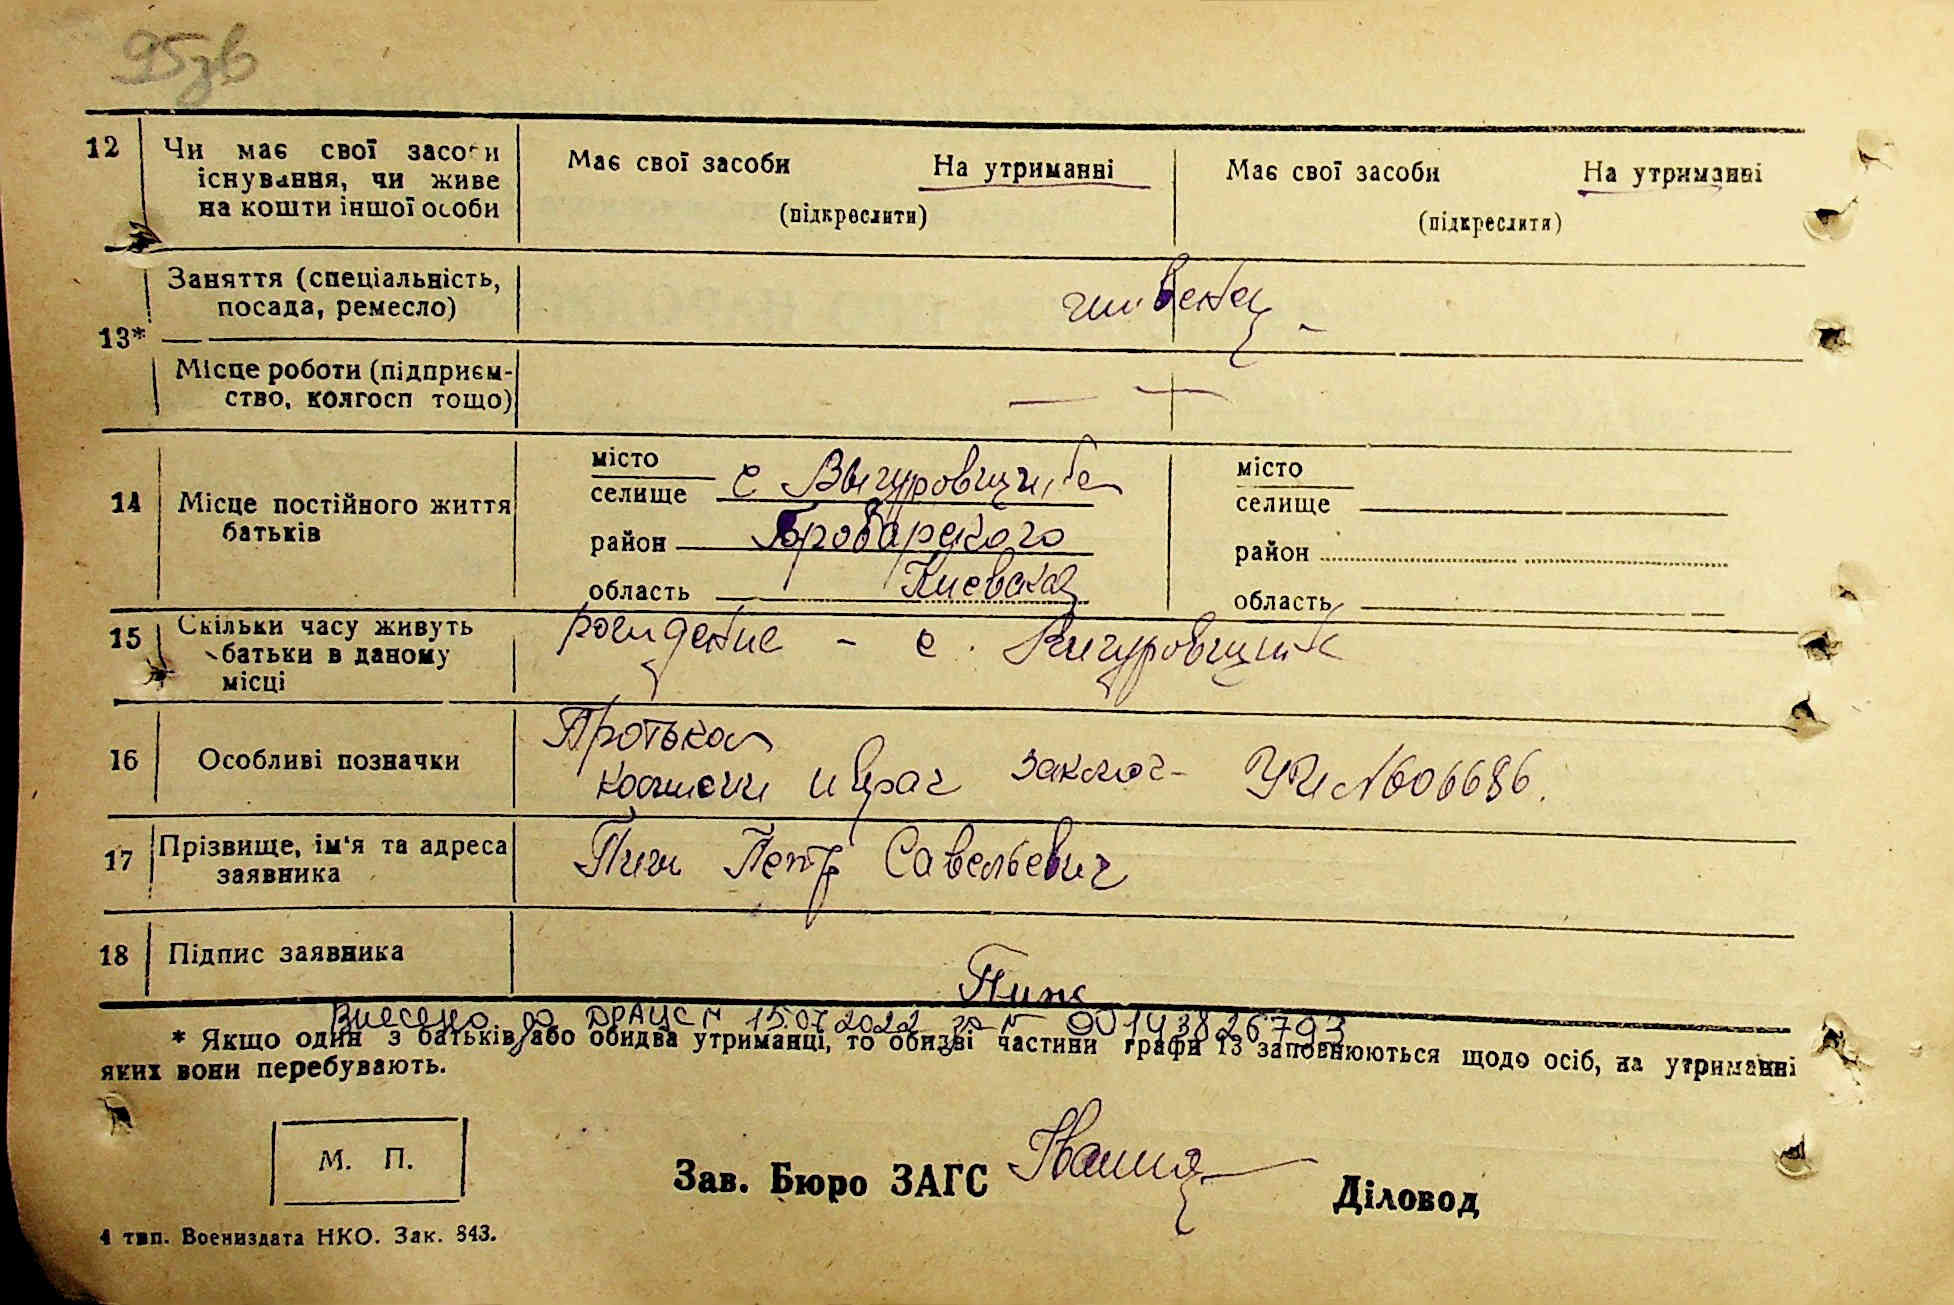 95зв
12 Чи має свої засоби існування, чи живе на кошти іншої особи
Має свої засоби На утриманні
(підкреслити)
Має свої засоби На утриманні
(підкреслити)
13*
Заняття (спеціальність, посада, ремесло)
Місце роботи (підприєм-
ство, колгосп тощо)
— —
14 Місце постійного життя батьків
місто
селище с Выгуровщина
район Броварского
область Киевская
місто
селище
район
область
15 Скільки часу живуть батьки в даному місці
рождение - с. Вигуровщин
16 Особливі позначки
Протокол
комиссии и врач заключ- № 606686.
17 Прізвище, ім'я та адреса заявника
Пиж Петр Савельевич
18 Підпис заявника
Пиж
Внесено до ДРАЦСГ 15.07.2022 за № 00143826793
* Якщо один з батьків або обидва утриманці, то обидві частини графи 13 заповнюються щодо осіб, на утриманні
яких вони перебувають.
М. П.
Зав. Бюро ЗАГС
Діловод
4 тип. Воениздата НКО. Зак. 843.